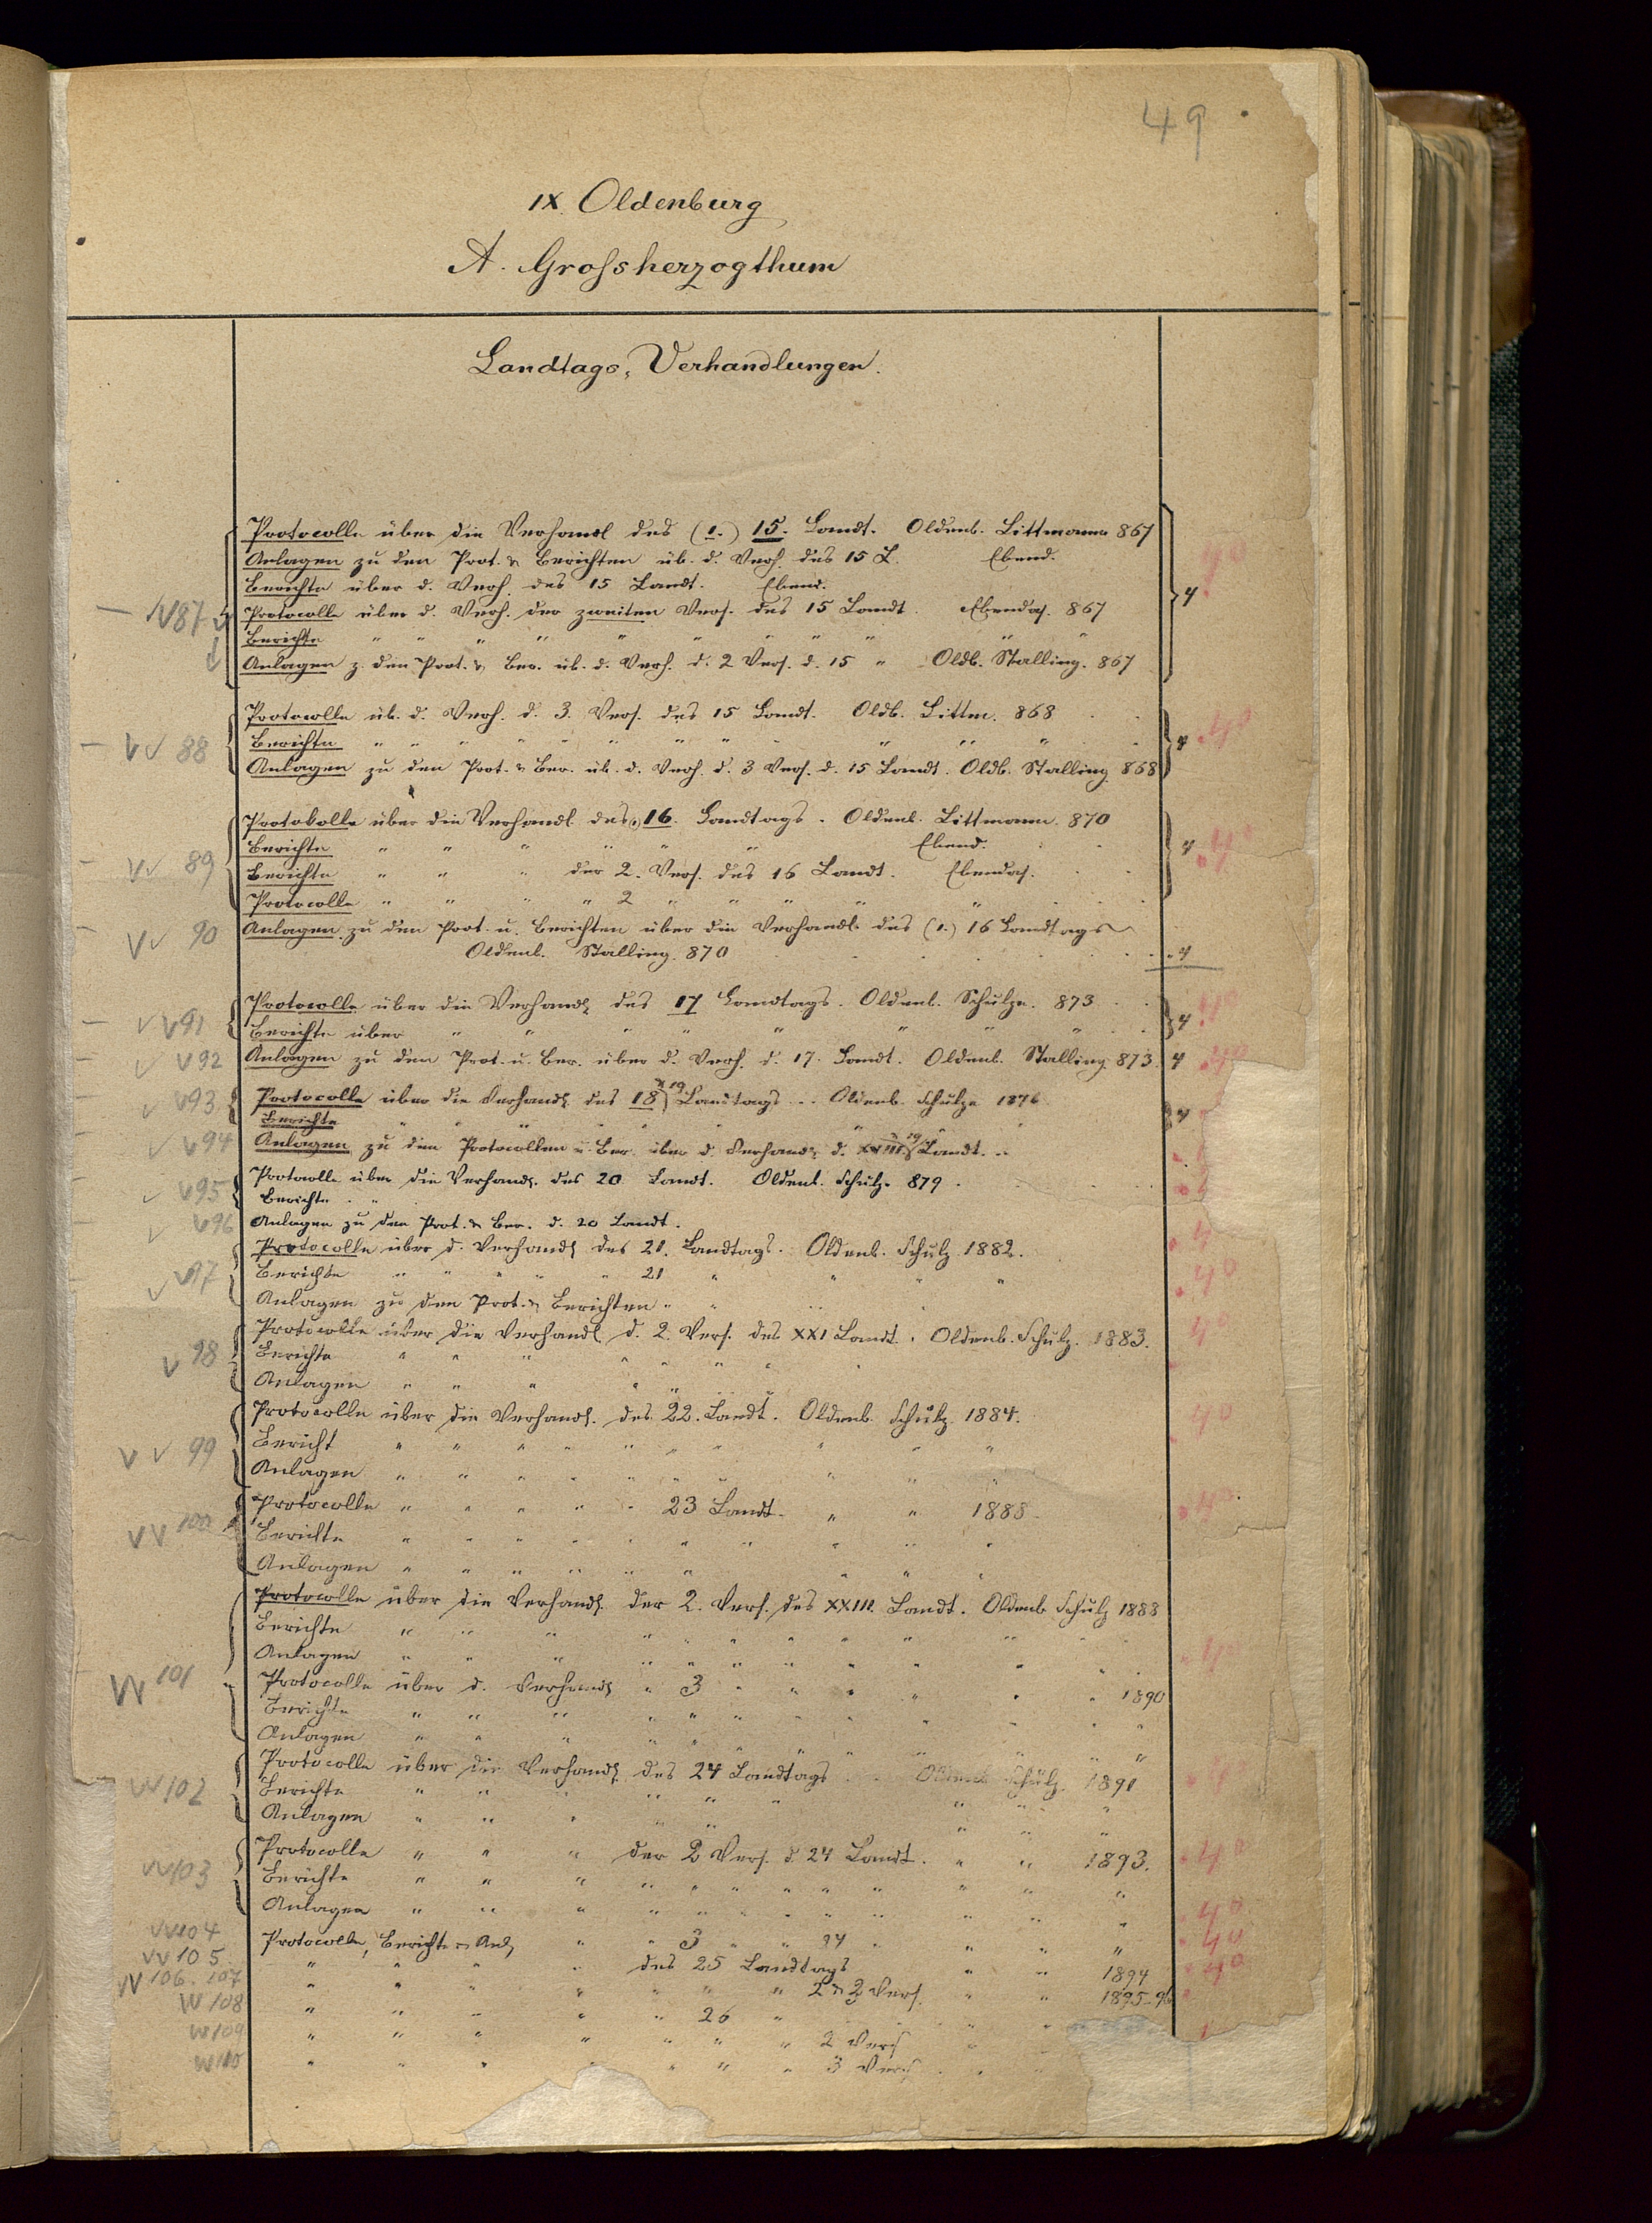 49
IX. Oldenburg
A. Grossherzogthum
Landtags-Verhandlungen.
Protocolle über die Verhandl des (1.) 15. Landt. Oldenb. Littmann 867
Anlagen zu den Prot. & Berichten üb. d. Verh. des 15 L. Ebend.
Berichte über d. Verh. des 15 Landt. Ebend. 4
V87 Protocolle über d. Verh. der zweiten Vers. des 15 Landt. Ebendas. 867
Berichte " " " " " " " " " " "
Anlagen z. den Prot. & Ber. üb. d. Verh. d. 2 Vers. d. 15 " Oldb. Stalling. 867
Protocolle üb. d. Verh. d. 3. Vers. des 15 Landt. Oldb. Littm. 868
88 Berichte " " " " " " " " " " " " 4
Anlagen zu den Prot. & Ber. üb. d. Verh. d. 3 Vers. d. 15 Landt. Oldb. Stalling 868
Protokolle über die Verhandl. des 16. Landtags. Oldenb. Littmann. 870
Berichte " " " " " " Ebend. 4
89 Berichte " " " der 2. Vers. des 16 Landt. Ebendas.
Protocolle " " " " 2 " " " " "
90 Anlagen zu den Prot. u. Berichten über die Verhandl. des (1.) 16 Landtags
Oldenb. Stalling. 870 4
V91 Protocolle über die Verhandl. des 17 Landtags. Oldenb. Schulze. 873
Berichte über " " " " " " " " 4
V92 Anlagen zu den Prot. u. Ber. über d. Verh. d. 17. Landt. Oldenb. Stalling 873. 4
V93 Protocolle über die Verhandl. des 18 & 19 Landtags. Oldenb. Schulze 1876
Berichte " " " " " " " 4
V94 Anlagen zu den Protocollen u. Ber. über d. Verhandl. d. XVIII 19 Landt.
V95 Protocolle über die Verhandl. des 20 Landt. Oldenb. Schulz. 879.
Berichte "
V96 Anlagen zu den Prot. & Ber. d. 20 Landt.
Protocolle über d. Verhandl. des 21. Landtags. Oldenb. Schulz 1882.
V97 Berichte " " " " " 21 " " " "
Anlagen zu den Prot. & Berichten " " " "
Protocolle über die Verhandl. d. 2. Vers. des XXI Landt. Oldenb. Schulz. 1883.
V98 Berichte " " " " " " "
Anlagen " " " " " " "
Protocolle über die Verhandl. des 22. Landt. Oldenb. Schulz 1884.
99 Bericht " " " " " " " " " "
Anlagen " " " " " " " " " "
Protocolle " " " " " 23 Landt. " " 1888.
100 Berichte " " " " " " " " " "
Anlagen " " " " " " " " "
Protocolle über die Verhandl. der 2. Vers. des XXIII. Landt. Oldenb Schulz 1888
Berichte " " " " " " " " " "
Anlagen " " " " " " " " " "
101 Protocolle über d. Verhandl " 3 " " " " " " 1890
Berichte " " " " " " " " " " "
Anlagen " " " " " " " " " " "
Protocolle über die Verhandl. des 24 Landtags Oldenb. Schulz. 1891
102 Berichte " " " " " " " " "
Anlagen " " " " " " " "
Protocolle " " " der 2 Vers. d. 24 Landt. " " 1893.
103 Berichte " " " " " " " " " " " "
Anlagen " " " " " " " " " " " "
104 Protocolle, Berichte & Anl. " " 3 " " 24 " " " "
105 " " " " des 25 Landtags " " 1894
106. 107 " " " " " " " 2 & 3 Vers. " " 1895-96
108 " " " " " 26 " " "
109 " " " " " " " 2 Vers "
110 " " " " " " " 3 Vers "